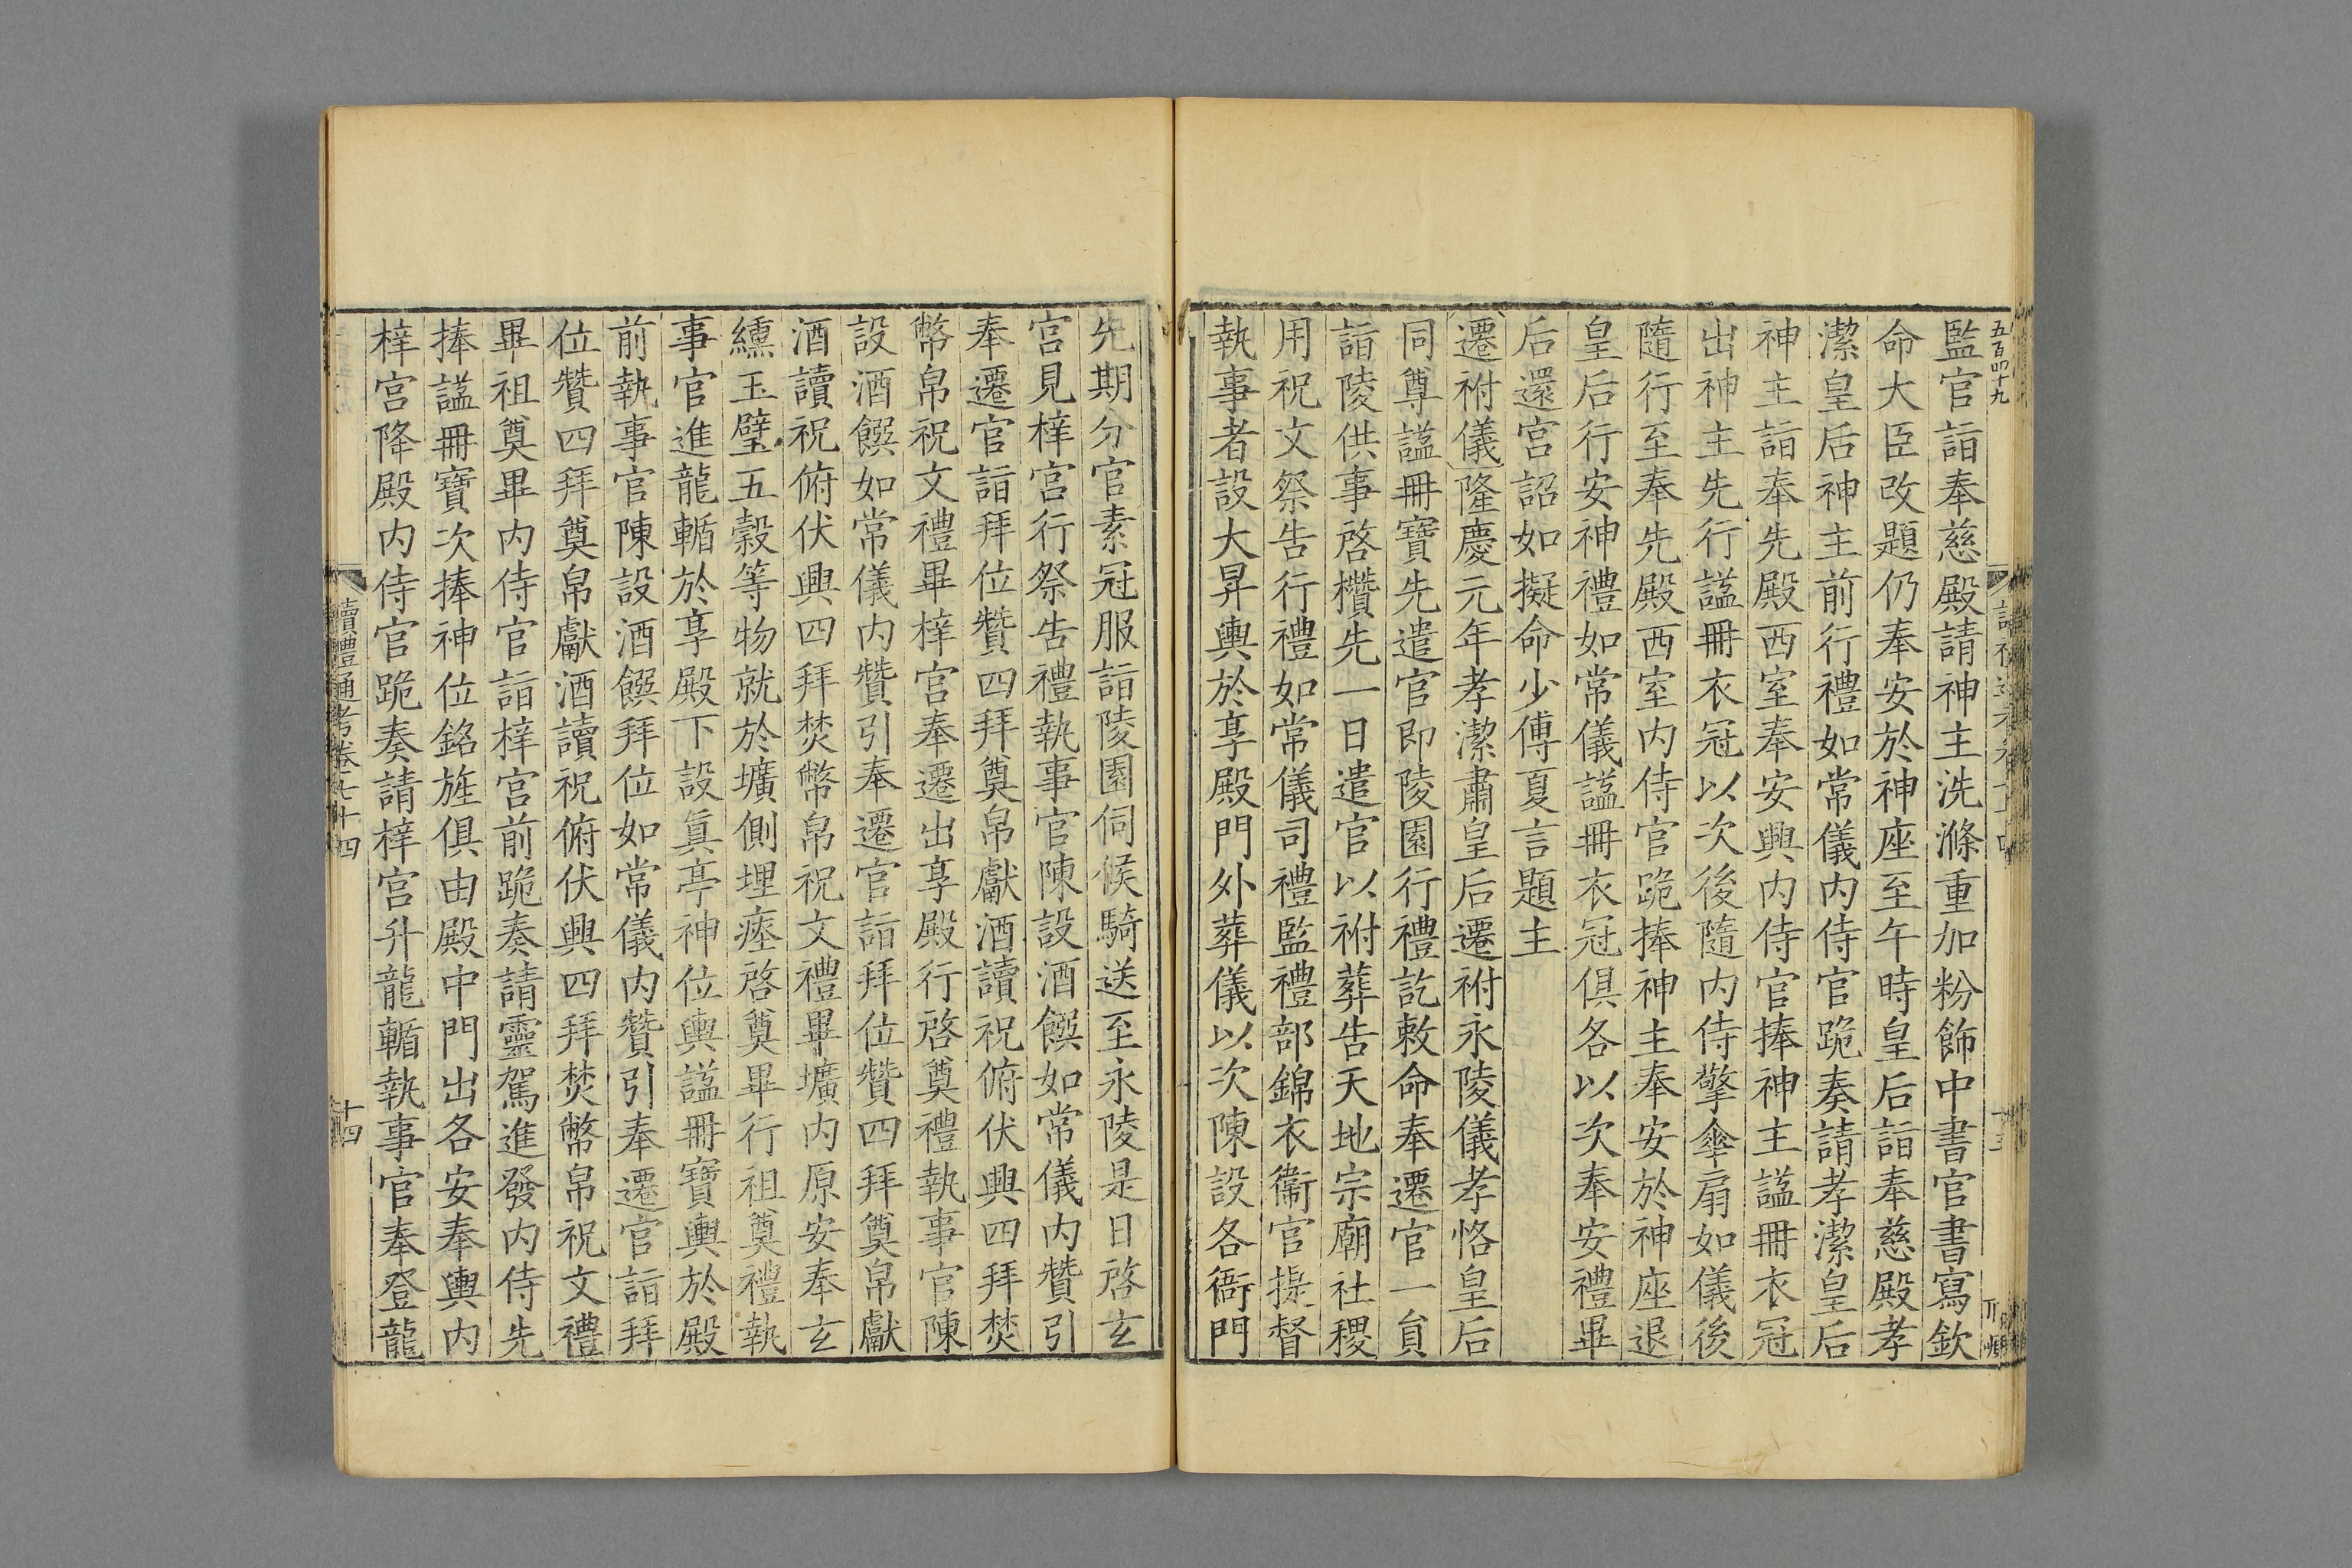 五百四十九
監官詣奉慈殿請神主洗滌重加粉飾中書官書寫欽
命大臣改題仍奉安於神座至午時皇后詣奉慈殿孝
潔皇后神主前行禮如常儀内侍官跪奏請孝潔皇后
神主詣奉先殿西室奉安興内侍官捧神主謚冊衣冠
出神主先行謚冊衣冠以次後隨内侍擎傘扇如儀後
隨行至奉先殿西室内侍官跪捧神主奉安於神座退
皇后行安神禮如常儀謚冊衣冠俱各以次奉安禮畢
后還宮詔如擬命少傅夏言題主
遷祔儀隆慶元年孝潔肅皇后遷祔永陵儀孝恪皇后
同尊謚冊寶先遣官即陵園行禮訖敕命奉遷官一員
詣陵供事啓欑先一日遣官以祔葬告天地宗廟社稷
用祝文祭告行禮如常儀司禮監禮部錦衣衛官提督
執事者設大昇輿於享殿門外葬儀以次陳設各衙門
先期分官素冠服詣陵園伺候騎送至永陵是日啓玄
宮見梓宮行祭告禮執事官陳設酒饌如常儀内贊引
奉遷官詣拜位贊四拜奠帛獻酒讀祝俯伏興四拜焚
幣帛祝文禮畢梓宮奉遷出享殿行啓奠禮執事官陳
設酒饌如常儀内贊引奉遷官詣拜位贊四拜奠帛獻
酒讀祝俯伏興四拜焚幣帛祝文禮畢壙内原安奉玄
纁玉璧五穀等物就於壙側埋瘞啓奠畢行祖奠禮執
事官進龍輴於享殿下設眞亭神位輿謚冊寶輿於殿
前執事官陳設酒饌拜位如常儀内贊引奉遷官詣拜
位贊四拜奠帛獻酒讀祝俯伏興四拜焚幣帛祝文禮
畢祖奠畢内侍官詣梓宮前跪奏請靈駕進發内侍先
捧謚冊寶次捧神位銘旌俱由殿中門出各安奉輿内
梓宮降殿内侍官跪奏請梓宮升龍輴執事官奉登龍
讀禮通考卷七十四
十四